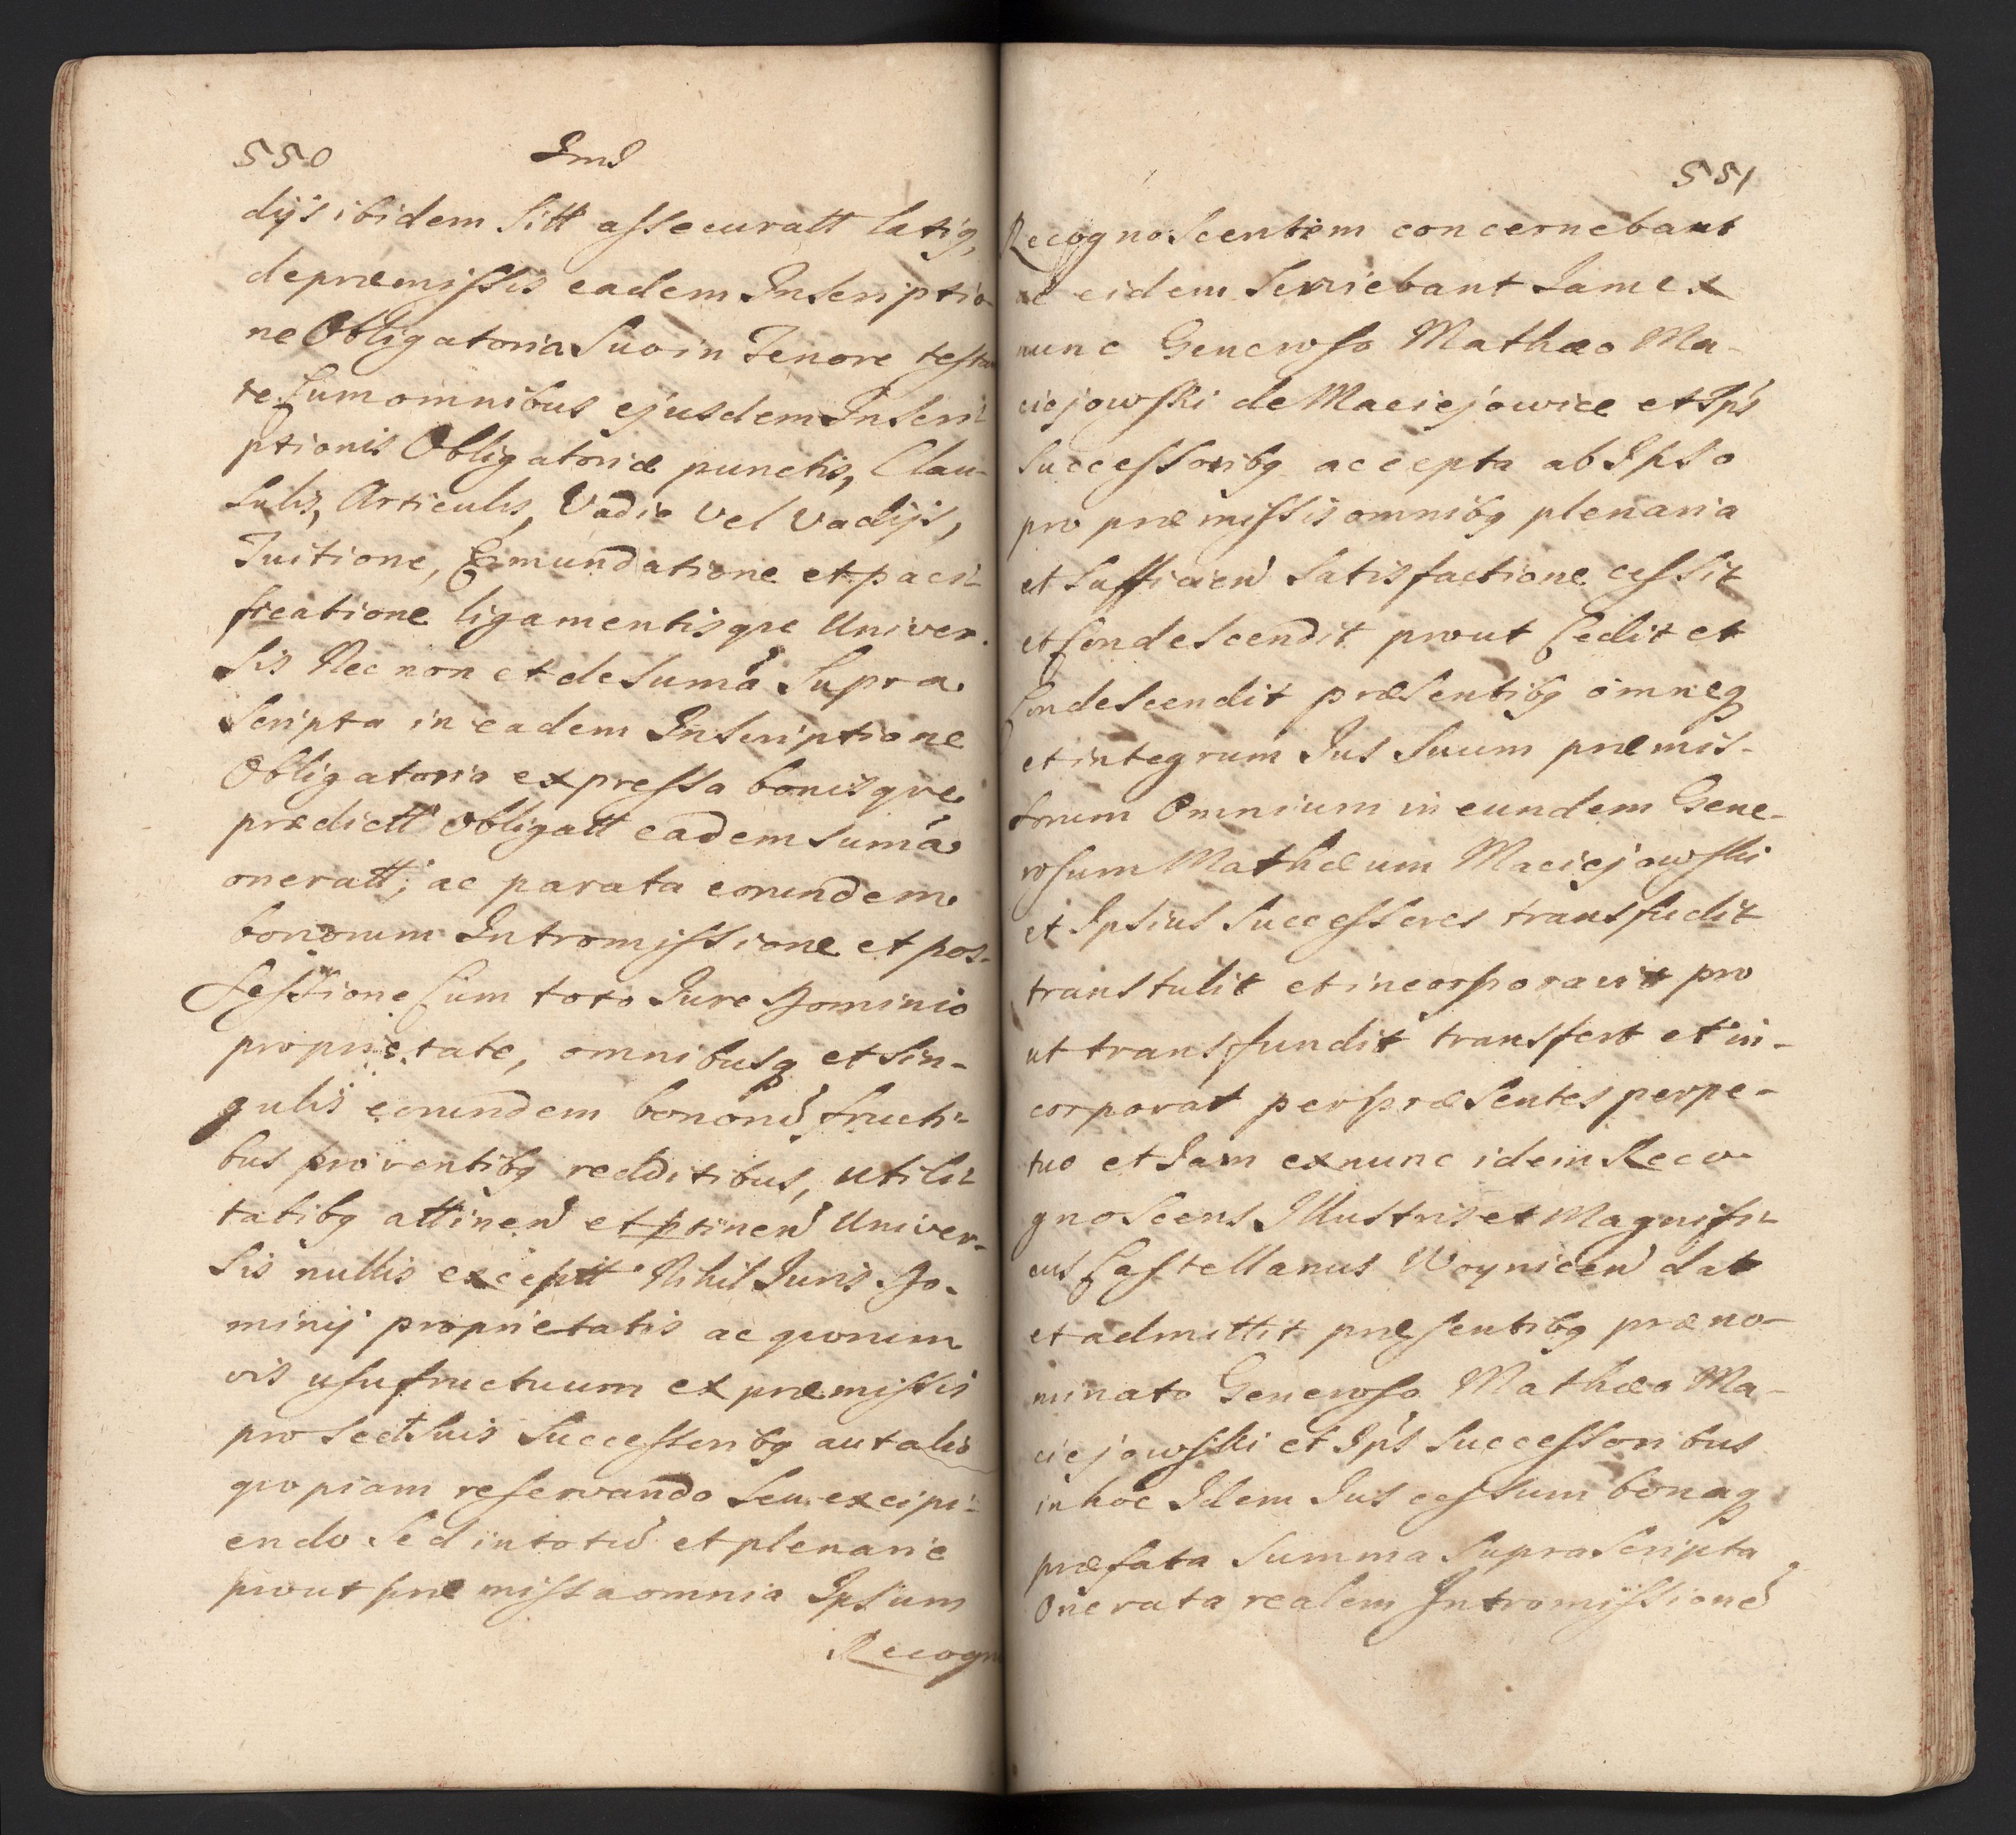 550 Ind
dijs ibidem Sitt assecuratt latig,
depræmissis eadem Inscriptio-
ne Obligatoria Suo in Tenore testan
te Cum omnibus ejusdem Inscri-
ptionis Obligatoriæ punctis, Clau-
sulis, Articulis, Vadio vel vadijs,
Tuitione, Emundatione et paci-
ficatione ligamentisque Univer-
sis Nec non et de Sumã Supra
Scripta in eadem Inscriptione
Obligatoria expressa bonisque
prædictt obligatt eadem Sumã
oneratt; ac parata eorundem
bonorum Intromissione et pos-
sessione Cum toto Jure Dominio
proprietate, omnibusq et Sin-
gulis eorundem bonorũ fructi-
bus proventibq redditibus, utili-
tatibq attinen et ptinen Univer-
sis nullis exceptt Nihil Juris Do-
minij proprietatis ac quorum
vis usufructuum ex præmissis
pro Se et Suis Successoribq aut alio
quopiam reservando Seu excipi-
endo Sed in totũ et plenarie
prout præmissa omnia Ipsum
Recogno
551
Recognoscentem concernebant
ac eidem Serviebant Jam ex
nunc Generoso Mathæo Ma-
ciejowski de Maciejowice et Ips
Successoribq accepta ab Ipso
pro præmissis omnibq plenaria
et Sufficien Satisfactione cessit
et Condescendit prout Cedit et
Condescendit præsentibq omneq
et integrum Jus Suum præmis-
sorum Omnium in eundem Gene-
rosum Mathæum Maciejowski
et Ipsius Successores transfudit
transtulit et incorporavit pro
ut transfundit transfert et in-
corporat per præsentes perpe-
tuo et Jam exnunc idem Reco-
gnoscens Illustris et Magnifi-
cus Castellanus Woynicen dat
et admittit præsentibq præno-
minato Generoso Mathæo Ma-
ciejowski et Ips Successoribus
in hoc Idem Jus cessum bonaq
præfata Summa Suprascripta
Onerata realem Intromissionẽ